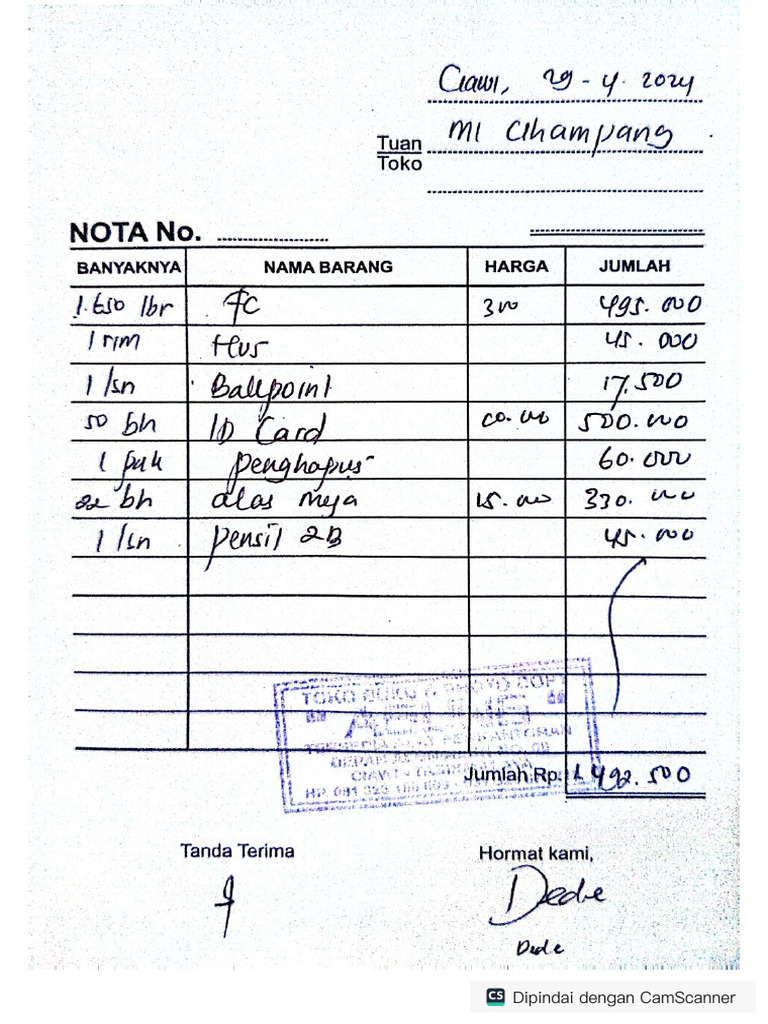 Ciawi, 29-4-2024
Tuan MI Cihampang
Toko
NOTA No.
BANYAKNYA NAMA BARANG HARGA JUMLAH
1.650 lbr FC 300 495.000
1 rim Hvs 45.000
1 lsn Ballpoint 17.500
50 bh ID Card 10.000 500.000
1 pak penghapus 60.000
22 bh alas meja 15.000 330.000
1 lsn pensil 2B 45.000
TOKO BUKU & PHOTO COPY
CIAWI -
HP. 081 323
Jumlah Rp. 1.492.500
Tanda Terima Hormat kami,
Dede
Dede
CS Dipindai dengan CamScanner